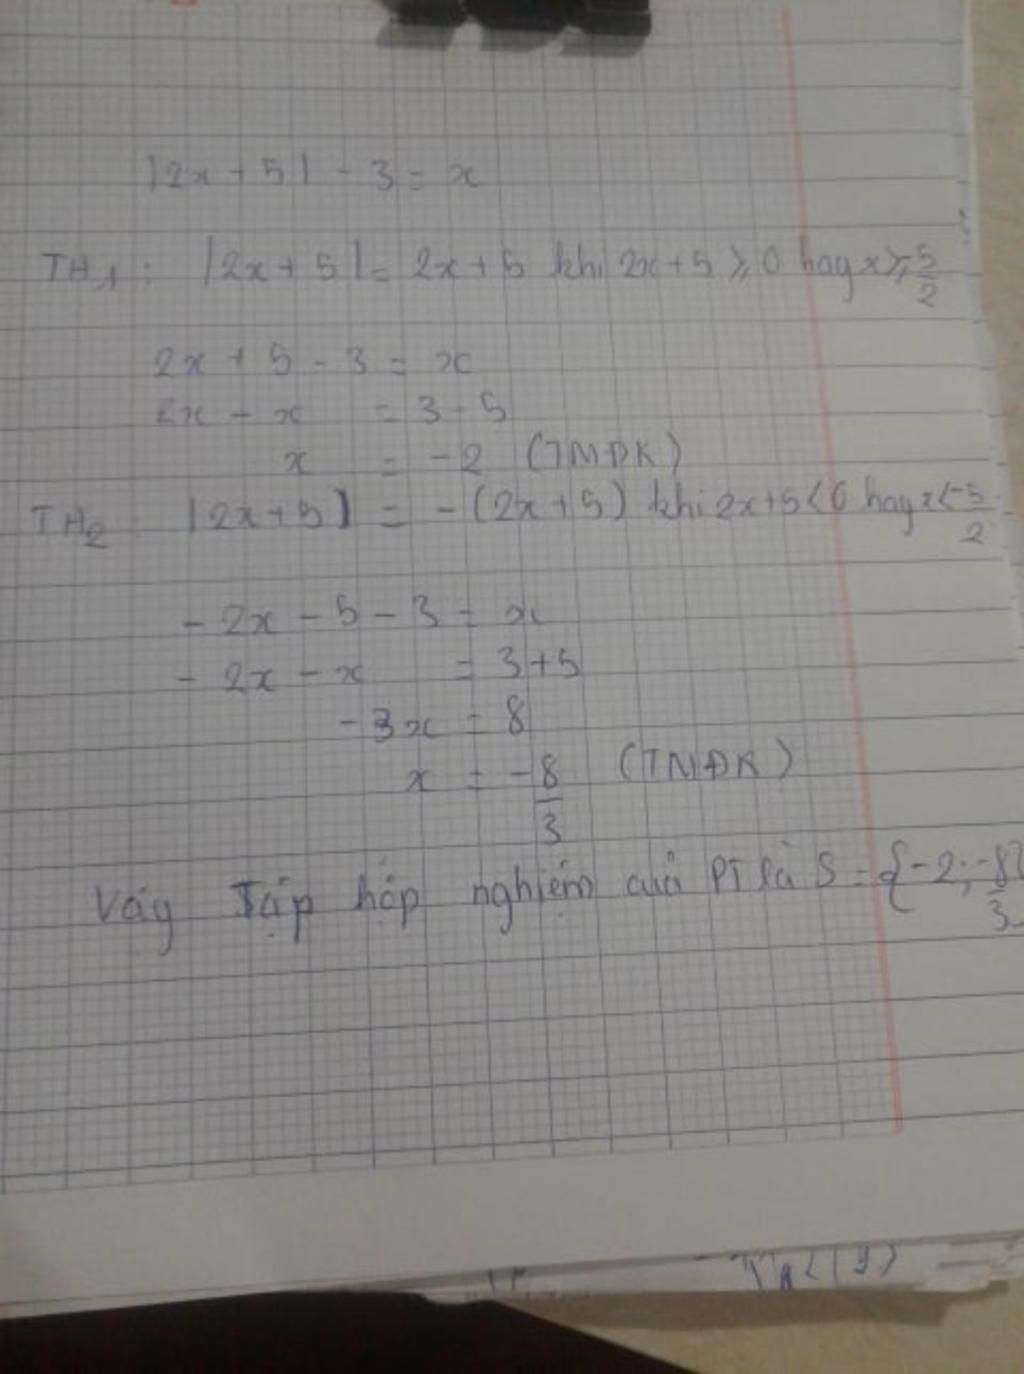 |2x + 5| - 3 = x
TH1: |2x + 5| = 2x + 5 khi 2x + 5 ≥ 0 hay x ≥ -5/2
2x + 5 - 3 = x
2x - x = 3 - 5
x = -2 (TMĐK)
TH2 |2x + 5| = -(2x + 5) khi 2x + 5 < 0 hay x < -5/2
- 2x - 5 - 3 = x
- 2x - x = 3 + 5
-3x = 8
x = -8/3 (TMĐK)
Vậy Tập hợp nghiệm của PT là S = {-2; -8/3}